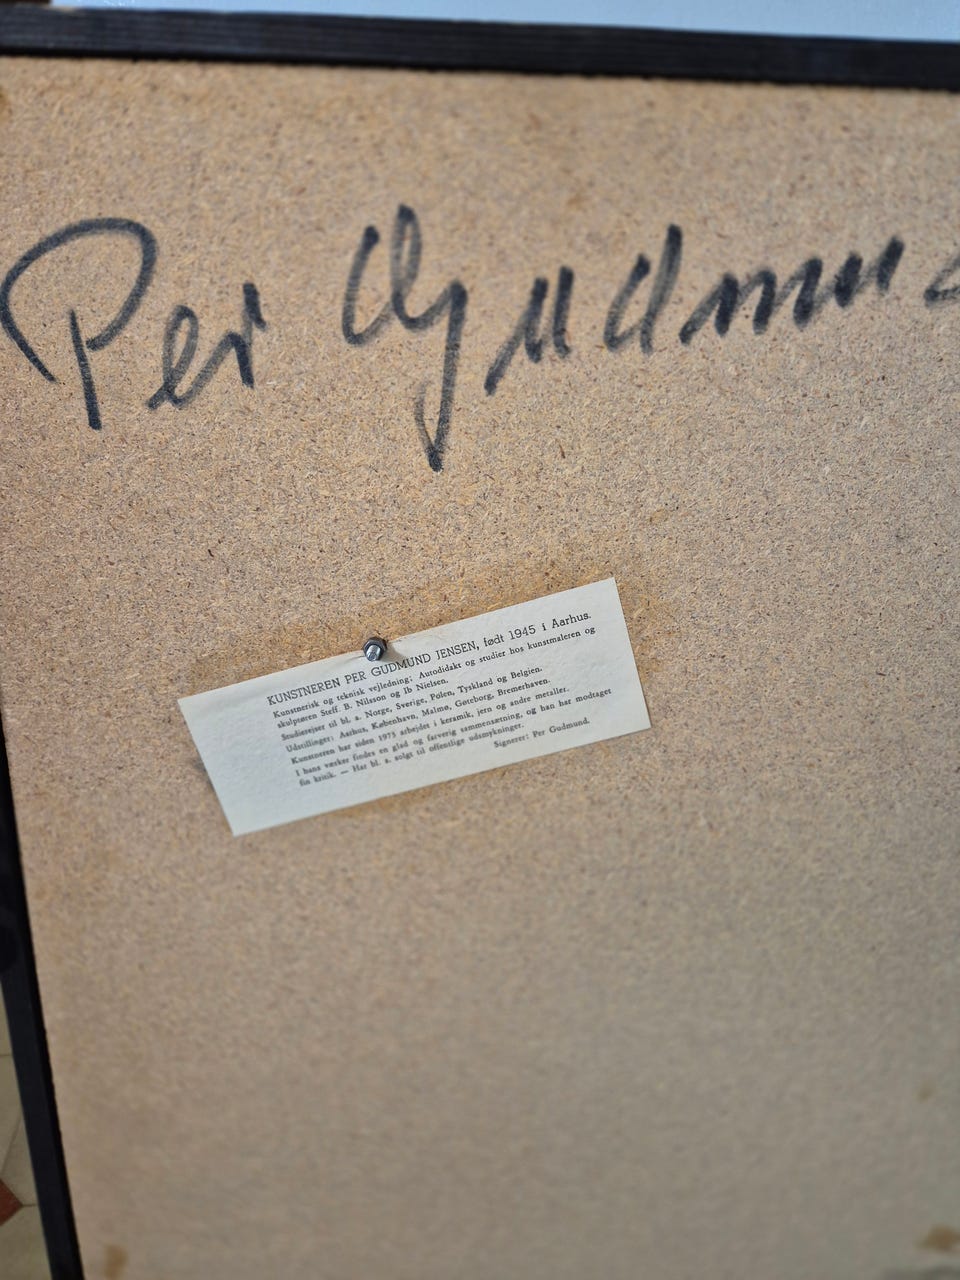 Per Gudmun
KUNSTNEREN PER GUDMUND JENSEN, født 1945 i Aarhus.
Kunstnerisk og teknisk vejledning: Autodidakt og studier hos kunstmaleren og
skulptøren Steff. B. Nilsson og Ib Nielsen.
Studierejser til bl. a. Norge, Sverige, Polen, Tyskland og Belgien.
Udstillinger: Aarhus, København, Malmø, Gøteborg, Bremerhaven.
Kunstneren har siden 1975 arbejdet i keramik, jern og andre metaller.
I hans værker findes en glad og farverig sammensætning, og han har modtaget
fin kritik. — Har bl. a. solgt til offentlige udsmykninger.
Signerer: Per Gudmund.